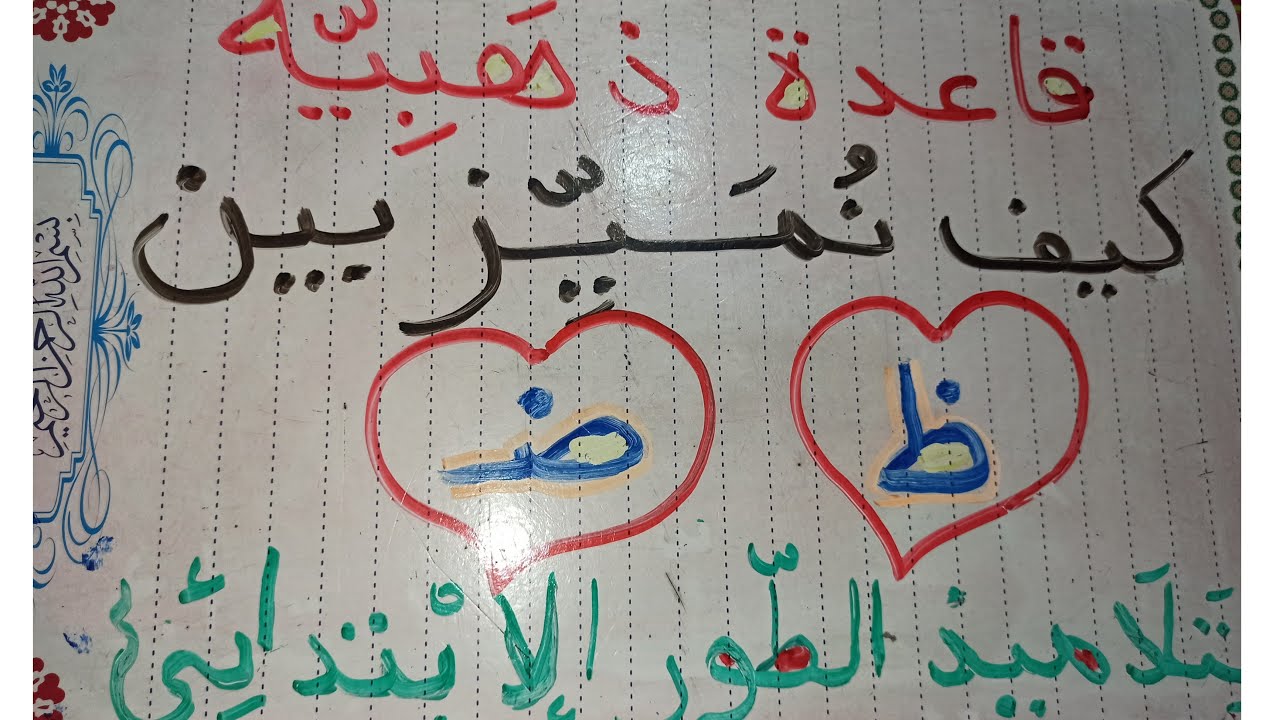 قاعدة ذَهَبِيّه
كيف نُمَيّز بين
ظ ضـ
تلاَميذ الطّور الإبْتدائي
بسم الله الرحمن الرحيم